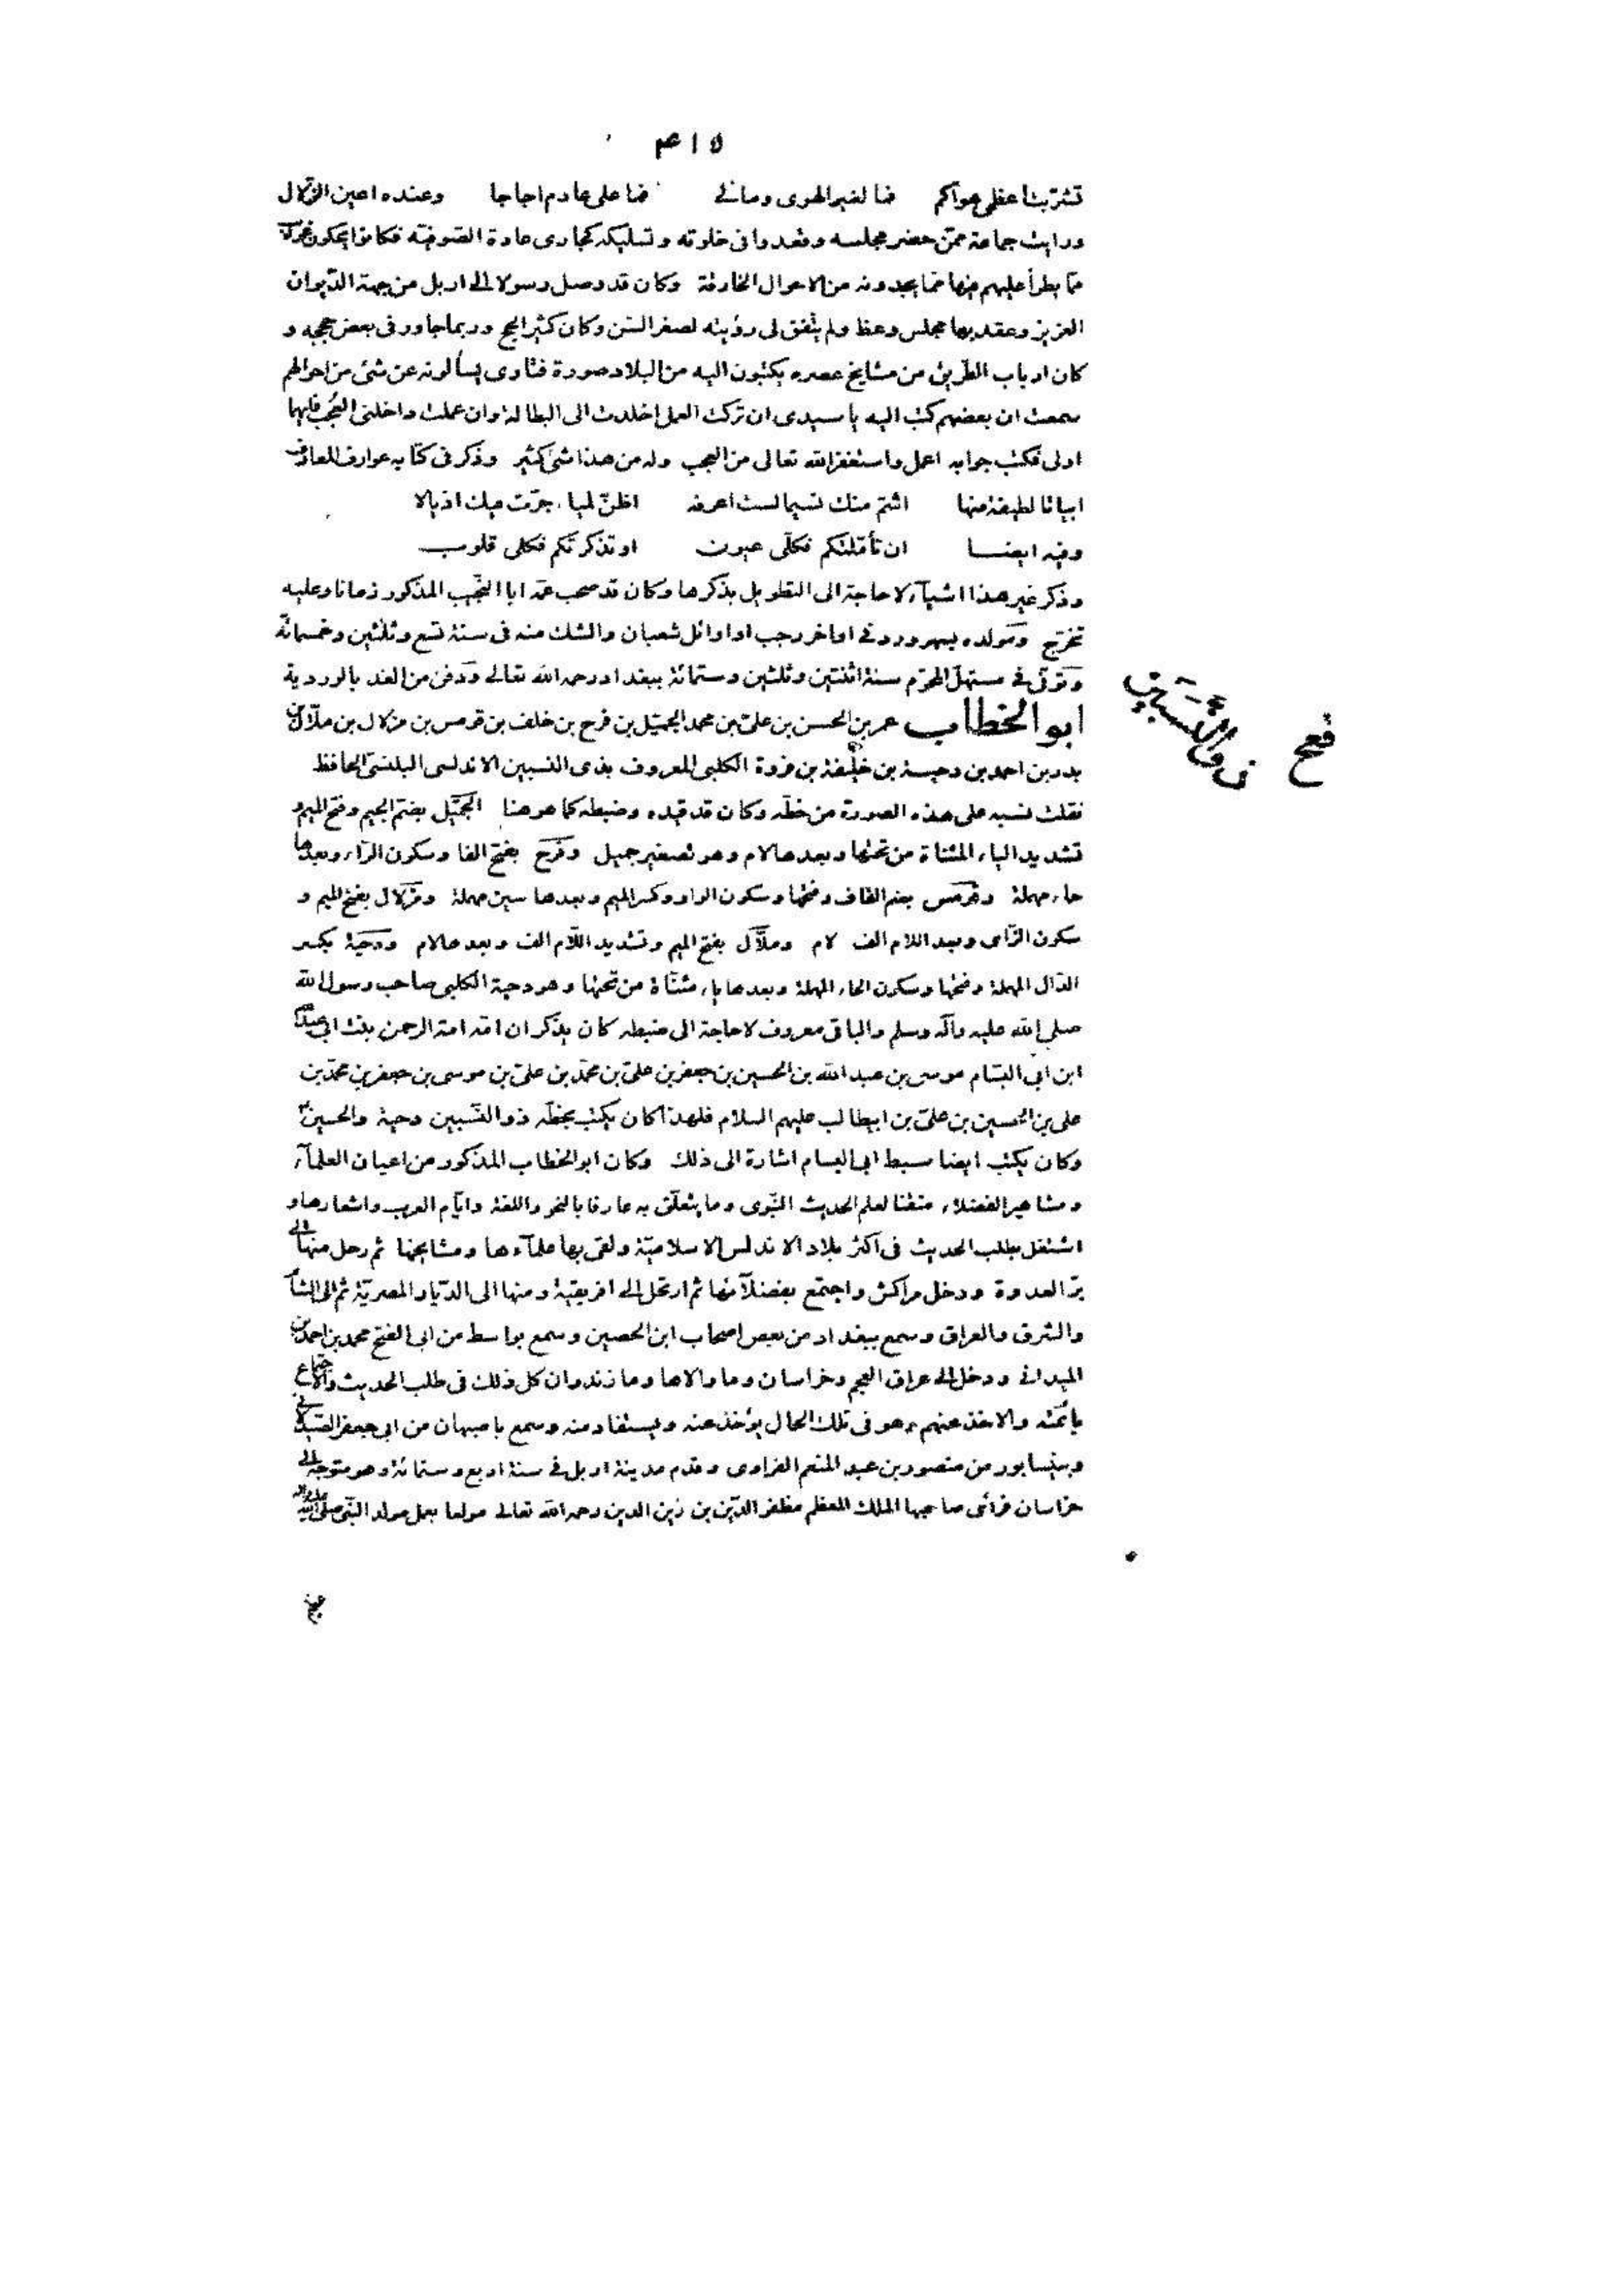 ٤١٥
تشربت اعظمي هواكم فما لغير الهوى ومالي فما على عادم اجاجا وعنده اعين الزلال
ورايت جماعة ممن حضر مجلسه وقعدوا في خلوته وتسليكه كجاري عادة الصوفية فكانوا يحكون غرائب
مما يطرأ عليهم فيها مما يجدونه من الاحوال الخارقة وكان قد وصل رسولا الى اربل من جهة الديوان
العزيز وعقد بها مجلس وعظ ولم يتفق لي رؤيته لصغر السن وكان كثير الحج وربما جاور في بعض حججه و
كان ارباب الطريق من مشايخ عصره يكتبون اليه من البلاد صورة فتاوى يسألونه عن شئ من احوالهم
سمعت ان بعضهم كتب اليه يا سيدى ان تركت العمل اخلدت الى البطالة وان عملت داخلنى العجب فايهما
اولى فكتب جوابه اعمل واستغفر الله تعالى من العجب وله من هذا شئ كثير وذكر في كتابه عوارف المعارف
ابياتا لطيفة منها اشتم منك نسيما لست اعرفه اظن لمياء جرّت فيك اذيالا
وفيه ايضا ان تأملتكم فكلّى عيون او تذكرتكم فكلى قلوب
وذكر غير هذا اشياء لا حاجة الى التطويل بذكرها وكان قد صحب عمه ابا النجيب المذكور زمانا وعليه
تخرّج ومولده بسهرورد في اواخر رجب او اوائل شعبان والشك منه في سنة تسع وثلثين وخمسمائة
وتوفّى في مستهلّ المحرّم سنة اثنتين وثلثين وستمائة ببغداد رحمه الله تعالى ودفن من الغد بالوردية
ذو النسبين
ابو الخطاب عمر بن الحسن بن علىّ بن محمد الجميّل بن فرح بن خلف بن قومس بن مزلال بن ملّال بن
بدر بن احمد بن دحية بن خليفة بن فروة الكلبى المعروف بذى النسبين الاندلسى البلنسىّ الحافظ
نقلت نسبه على هذه الصورة من خطّه وكان قد قيده وضبطه كما هو هنا الجميّل بضم الجيم وفتح الميم و
تشديد الياء المثناة من تحتها وبعدها لام وهو تصغير جميل وفرح بفتح الفا وسكون الراء وبعدها
حاء مهملة وقومس بضم القاف وفتحها وسكون الواو وكسر الميم وبعدها سين مهملة ومزلال بفتح الميم و
سكون الزاى وبعد اللام الف لام وملّال بفتح الميم وتشديد اللّام الف وبعدها لام ودحية بكسر
الدّال المهملة وفتحها وسكون الحاء المهملة وبعدها ياء مثنّاة من تحتها وهو دحية الكلبى صاحب رسول الله
صلى الله عليه وآله وسلم والباقى معروف لا حاجة الى ضبطه كان يذكر ان امّه امة الرحمن بنت ابى عبد الله
ابن ابى البسّام موسى بن عبد الله بن الحسين بن جعفر بن علىّ بن محمّد بن علىّ بن موسى بن جعفر بن محمّد بن
على بن الحسين بن علىّ بن ابيطالب عليهم السلام فلهذا كان يكتب بخطّه ذو النّسبين دحية والحسين
وكان يكتب ايضا سبط ابى البسام اشارة الى ذلك وكان ابو الخطاب المذكور من اعيان العلمآء
ومشاهير الفضلاء متقنا لعلم الحديث النّبوى وما يتعلّق به عارفا بالنحو واللغة وايّام العرب واشعارها و
اشتغل بطلب الحديث فى اكثر بلاد الاندلس الاسلاميّة ولقى بها علمآءها ومشايخها ثم رحل منها الى
برّ العدوة ودخل مراكش واجتمع بفضلآئها ثم ارتحل الى افريقيّة ومنها الى الدّيار المصريّة ثم الى الشام
والشرق والعراق وسمع ببغداد من بعض اصحاب ابن الحصين وسمع بواسط من ابى الفتح محمد بن احمد بن
الميدانى ودخل الى عراق العجم وخراسان وما والاها ومازندران كل ذلك فى طلب الحديث والاجتماع
بائمّته والاخذ عنهم وهو فى تلك الحال يؤخذ عنه ويستفاد منه وسمع باصبهان من ابى جعفر الصيدلانى
وبنيسابور من منصور بن عبد المنعم الفراوى وقدم مدينة اربل فى سنة اربع وستمائة وهو متوجّه الى
خراسان فرأى صاحبها الملك المعظم مظفر الدّين بن زين الدين رحمه الله تعالى مولعا بعمل مولد النّبى صلى الله عليه وآله